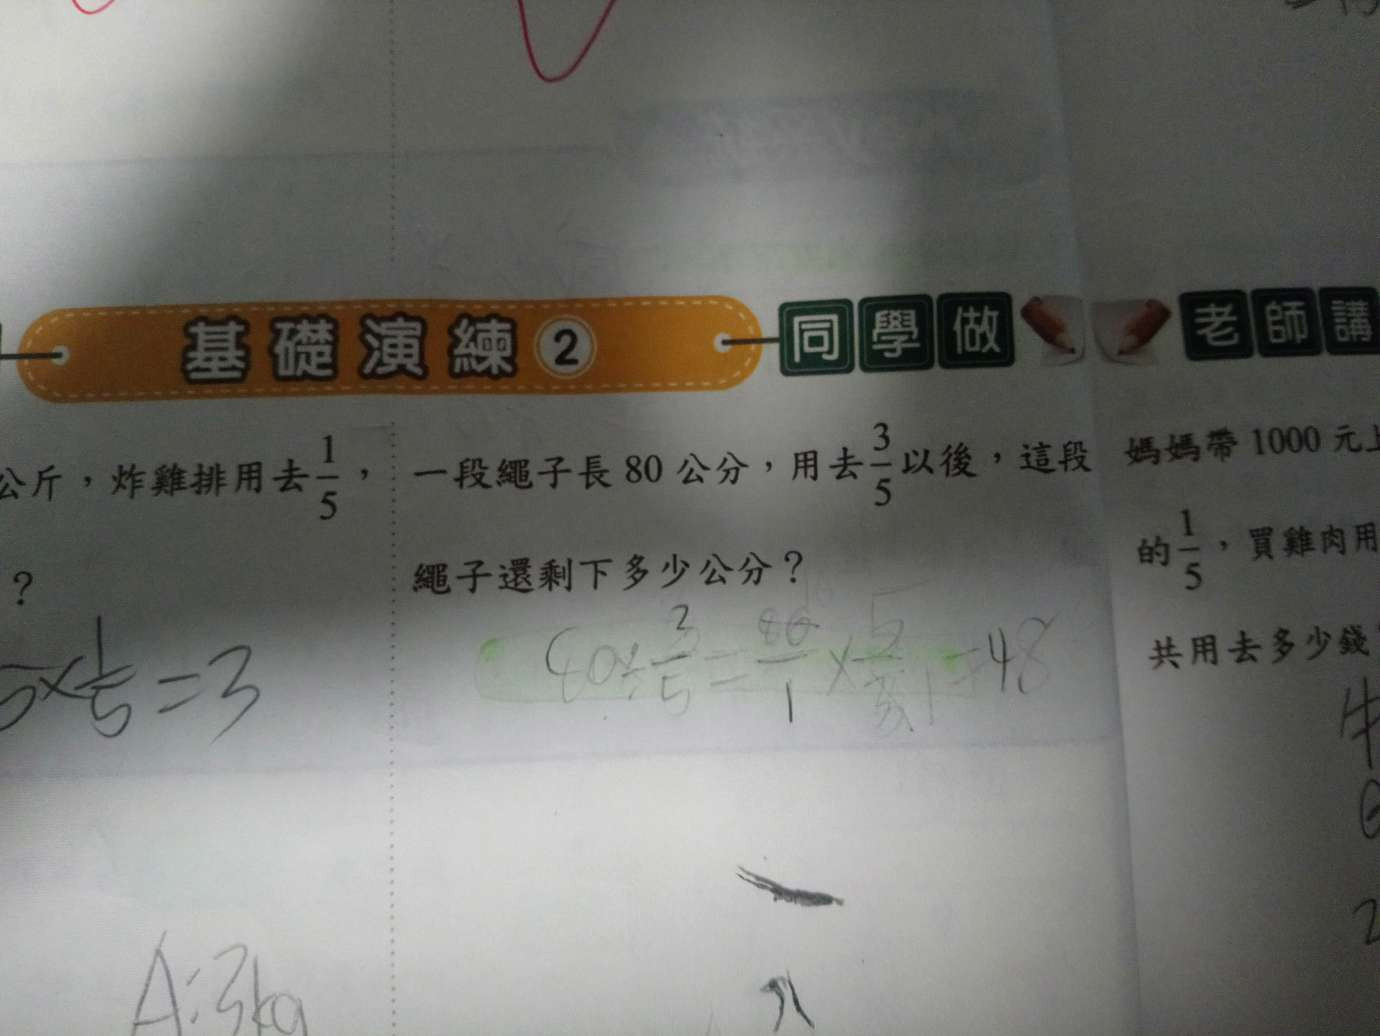 基礎演練2 同學做 老師講
公斤，炸雞排用去1/5，
?
×1/5=3
A:3kg
一段繩子長80公分，用去3/5以後，這段
繩子還剩下多少公分?
80÷3/5=80/1×5/3=48
媽媽帶1000元
的1/5，買雞肉用
共用去多少錢